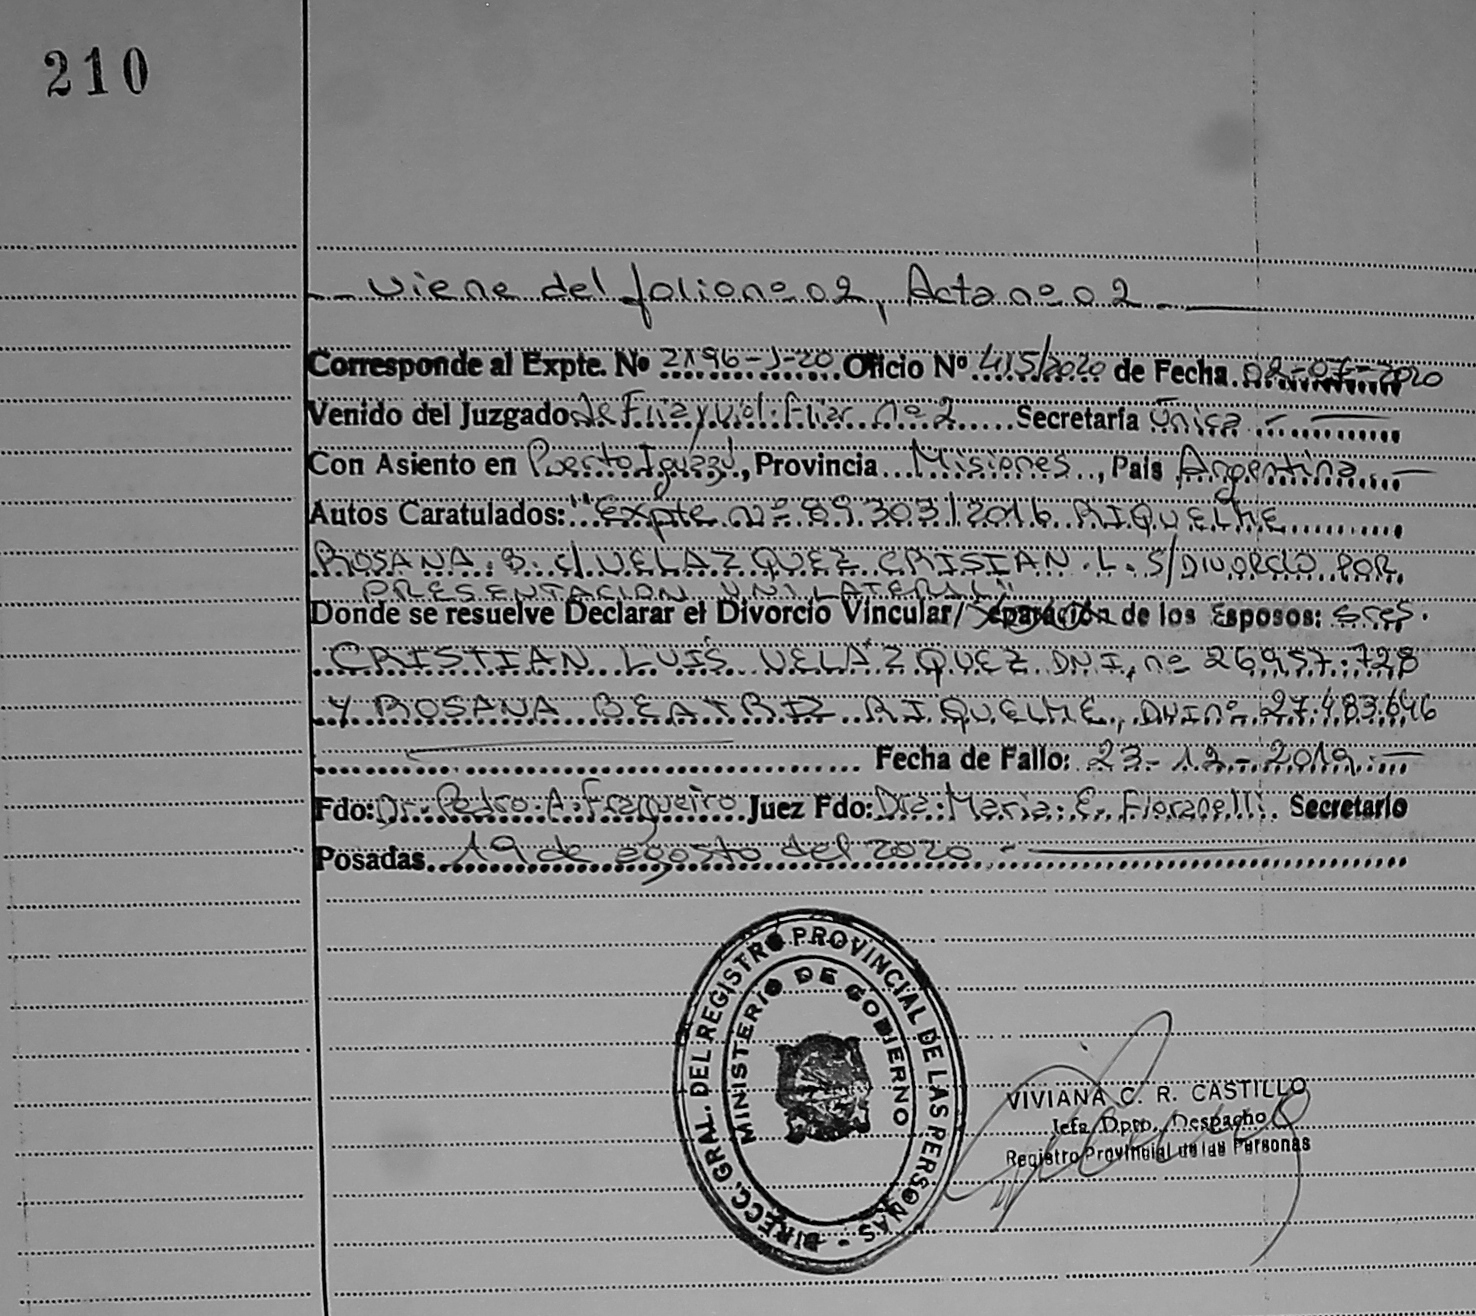 210
viene del folio nº 02, Acta nº 02
Corresponde al Expte. Nº 2196-J-20 Oficio Nº 415/2020 de Fecha 02-07-2020
Venido del Juzgado de Flia y Viol. Fliar. nº 2 Secretaría Única
Con Asiento en Puerto Iguazú, Provincia Misiones, País Argentina
Autos Caratulados: "Expte. nº 89.303/2016 RIQUELME
ROSANA B. c/ VELAZQUEZ CRISIAN L. S/DIVORCIO POR
PRESENTACION UNILATERAL"
Donde se resuelve Declarar el Divorcio Vincular/Separación de los Esposos: sres.
CRISTIAN LUIS VELAZQUEZ DNI, nº 26.957.728
Y ROSANA BEATRIZ RIQUELME, DNI nº 27.483.646
Fecha de Fallo: 23-12-2019
Fdo: Dr. Pedro A. Fragueiro Juez Fdo: Dra. Maria E. Fioranelli. Secretario
Posadas 19 de agosto del 2020
DIRECC. GRAL. DEL REGISTRO PROVINCIAL DE LAS PERSONAS -
MINISTERIO DE GOBIERNO
VIVIANA C. R. CASTILLO
Jefa Dpto. Despacho
Registro Provincial de las Personas